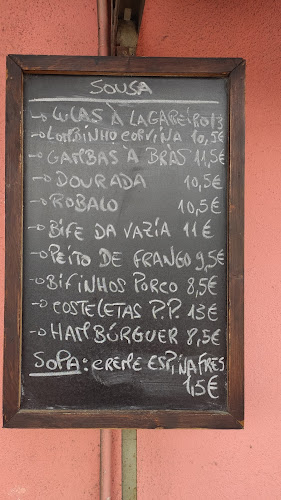 SOUSA
→ LULAS À LAGAREIRO 13
→ LOMBINHO CORVINA 10,5€
→ GAMBAS À BRÀS 11,5€
→ DOURADA 10,5€
→ ROBALO 10,5€
→ BIFE DA VAZIA 11€
→ PEITO DE FRANGO 9,5€
→ BIFINHOS PORCO 8,5€
→ COSTELETAS P.P. 13€
→ HAMBÚRGUER 8,5€
SOPA: CREME ESPINAFRES
1,5€